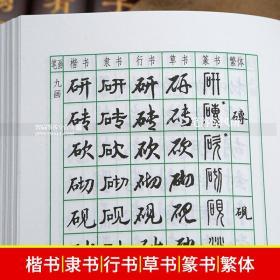 笔画 楷书 隶书 行书 草书 篆书 繁体
九画 研 研 研 研 研
砖 砖 砖 砖 磚 磚
砍 砍 砍 砍 砍
砌 砌 砌 砌 砌
砚 砚 砚 砚 硯 硯
楷书|隶书|行书|草书|篆书|繁体